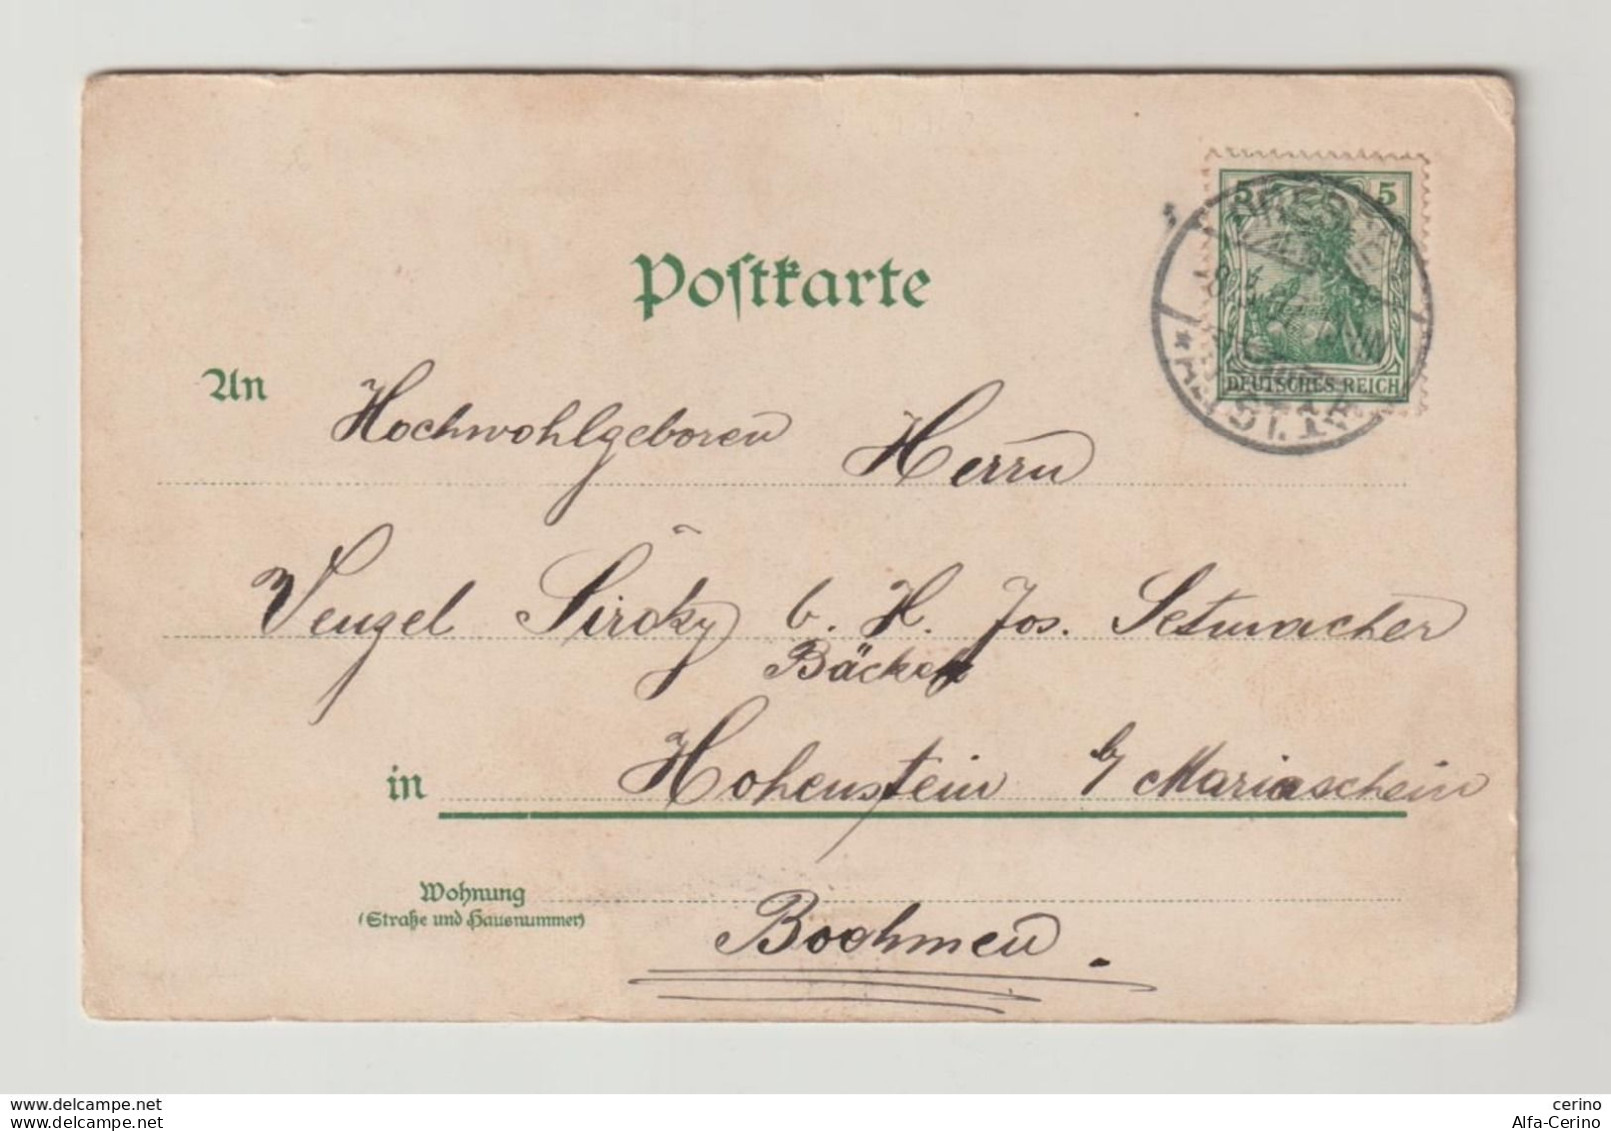 Postkarte
5 5
DRESDEN
ALTST.
DEUTSCHES REICH
An
Hochwohlgeboren Herrn
Venzel Široky b. H. Jos. Setmacher
Bäcker
in Hohenstein b/ Mariaschein
Wohnung
(Straße und Hausnummer)
Boehmen.
delcampe.net
cerino
Alfa-Cerino